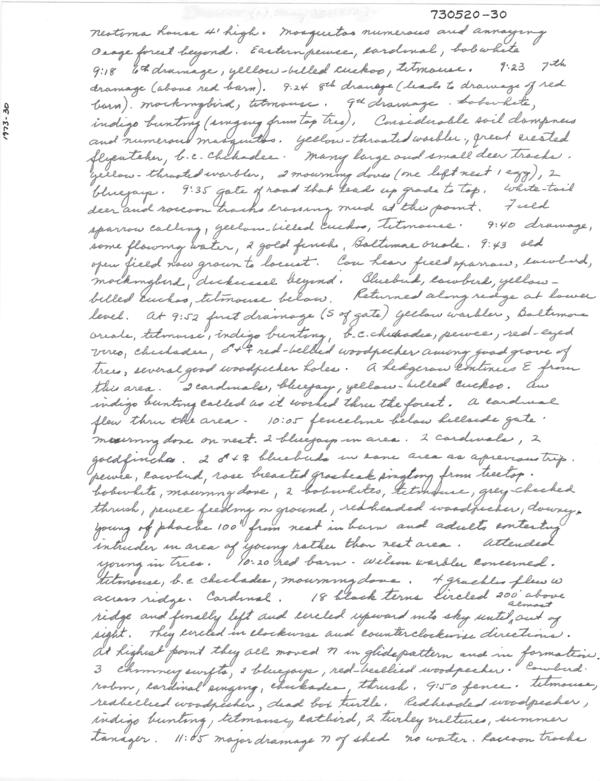 730520-30
1973-30
Neotoma house 4' high. Mosquitos numerous and annoying
Osage forest beyond. Eastern pewee, cardinal, bobwhite
9:18 6th drainage, yellow-billed cuckoo, titmouse. 9:23 7th
drainage (above red barn). 9:24 8th drainage (leads to drainage of red
barn). mockingbird, titmouse. 9th drainage. bobwhite,
indigo bunting (singing from top tree). Considerable soil dampness
and numerous mosquitos. yellow-throated warbler, great crested
flycatcher, b.c. chickadee. Many large and small deer tracks.
yellow-throated warbler, 2 mourning doves (one left nest 1 egg), 2
bluejays. 9:35 gate of road that leads up grade to top. White-tail
deer and raccoon tracks crossing mud at this point. Field
sparrow calling, yellow-billed cuckoo, titmouse. 9:40 drainage,
some flowing water, 2 gold finch, Baltimore oriole. 9:43 old
open field now grown to locust. Can hear field sparrow, cowbird,
mockingbird, dickcissel beyond. Bluebird, cowbird, yellow-
billed cuckoo, titmouse below. Returned along ridge at lower
level. At 9:52 first drainage (S of gate) yellow warbler, Baltimore
oriole, titmouse, indigo bunting, b.c. chickadee, pewee, red-eyed
vireo, chickadee, ♂+♀ red-bellied woodpecker among good grove of
trees, several good woodpecker holes. A hedgerow continues E from
this area. 2 cardinals, bluejay, yellow-billed cuckoo. An
indigo bunting called as it worked thru the forest. A cardinal
flew thru the area. 10:05 fenceline below hillside gate.
mourning dove on nest. 2 bluejays in area. 2 cardinals, 2
goldfinches. 2 ♂+♀ bluebirds in same area as a previous trip.
pewee, cowbird, rose breasted grosbeak singing from treetop.
bobwhite, mourning dove, 2 bobwhites, titmouse, grey-cheeked
thrush, pewee feeding on ground, redheaded woodpecker, downy.
young of phoebe 100' from nest in barn and adults contesting
intruder in area of young rather than nest area. Attended
young in trees. 10:20 red barn. Wilson warbler concerned.
titmouse, b.c chickadee, mourning dove. 4 grackles flew W
across ridge. Cardinal. 18 black terns circled 200' above
ridge and finally left and circled upward into sky until almost out of
sight. They circled in clockwise and counterclockwise directions.
At highest point they all moved N in glide pattern and in formation.
3 chimney swifts, 2 bluejays, red-bellied woodpecker. Cowbird.
robin, cardinal singing, chickadee, thrush. 9:50 fence. titmouse,
redbellied woodpecker, dead box turtle. Redheaded woodpecker,
indigo bunting, titmouse, catbird, 2 turkey vultures, summer
tanager. 11:05 major drainage N of shed no water. Raccoon tracks